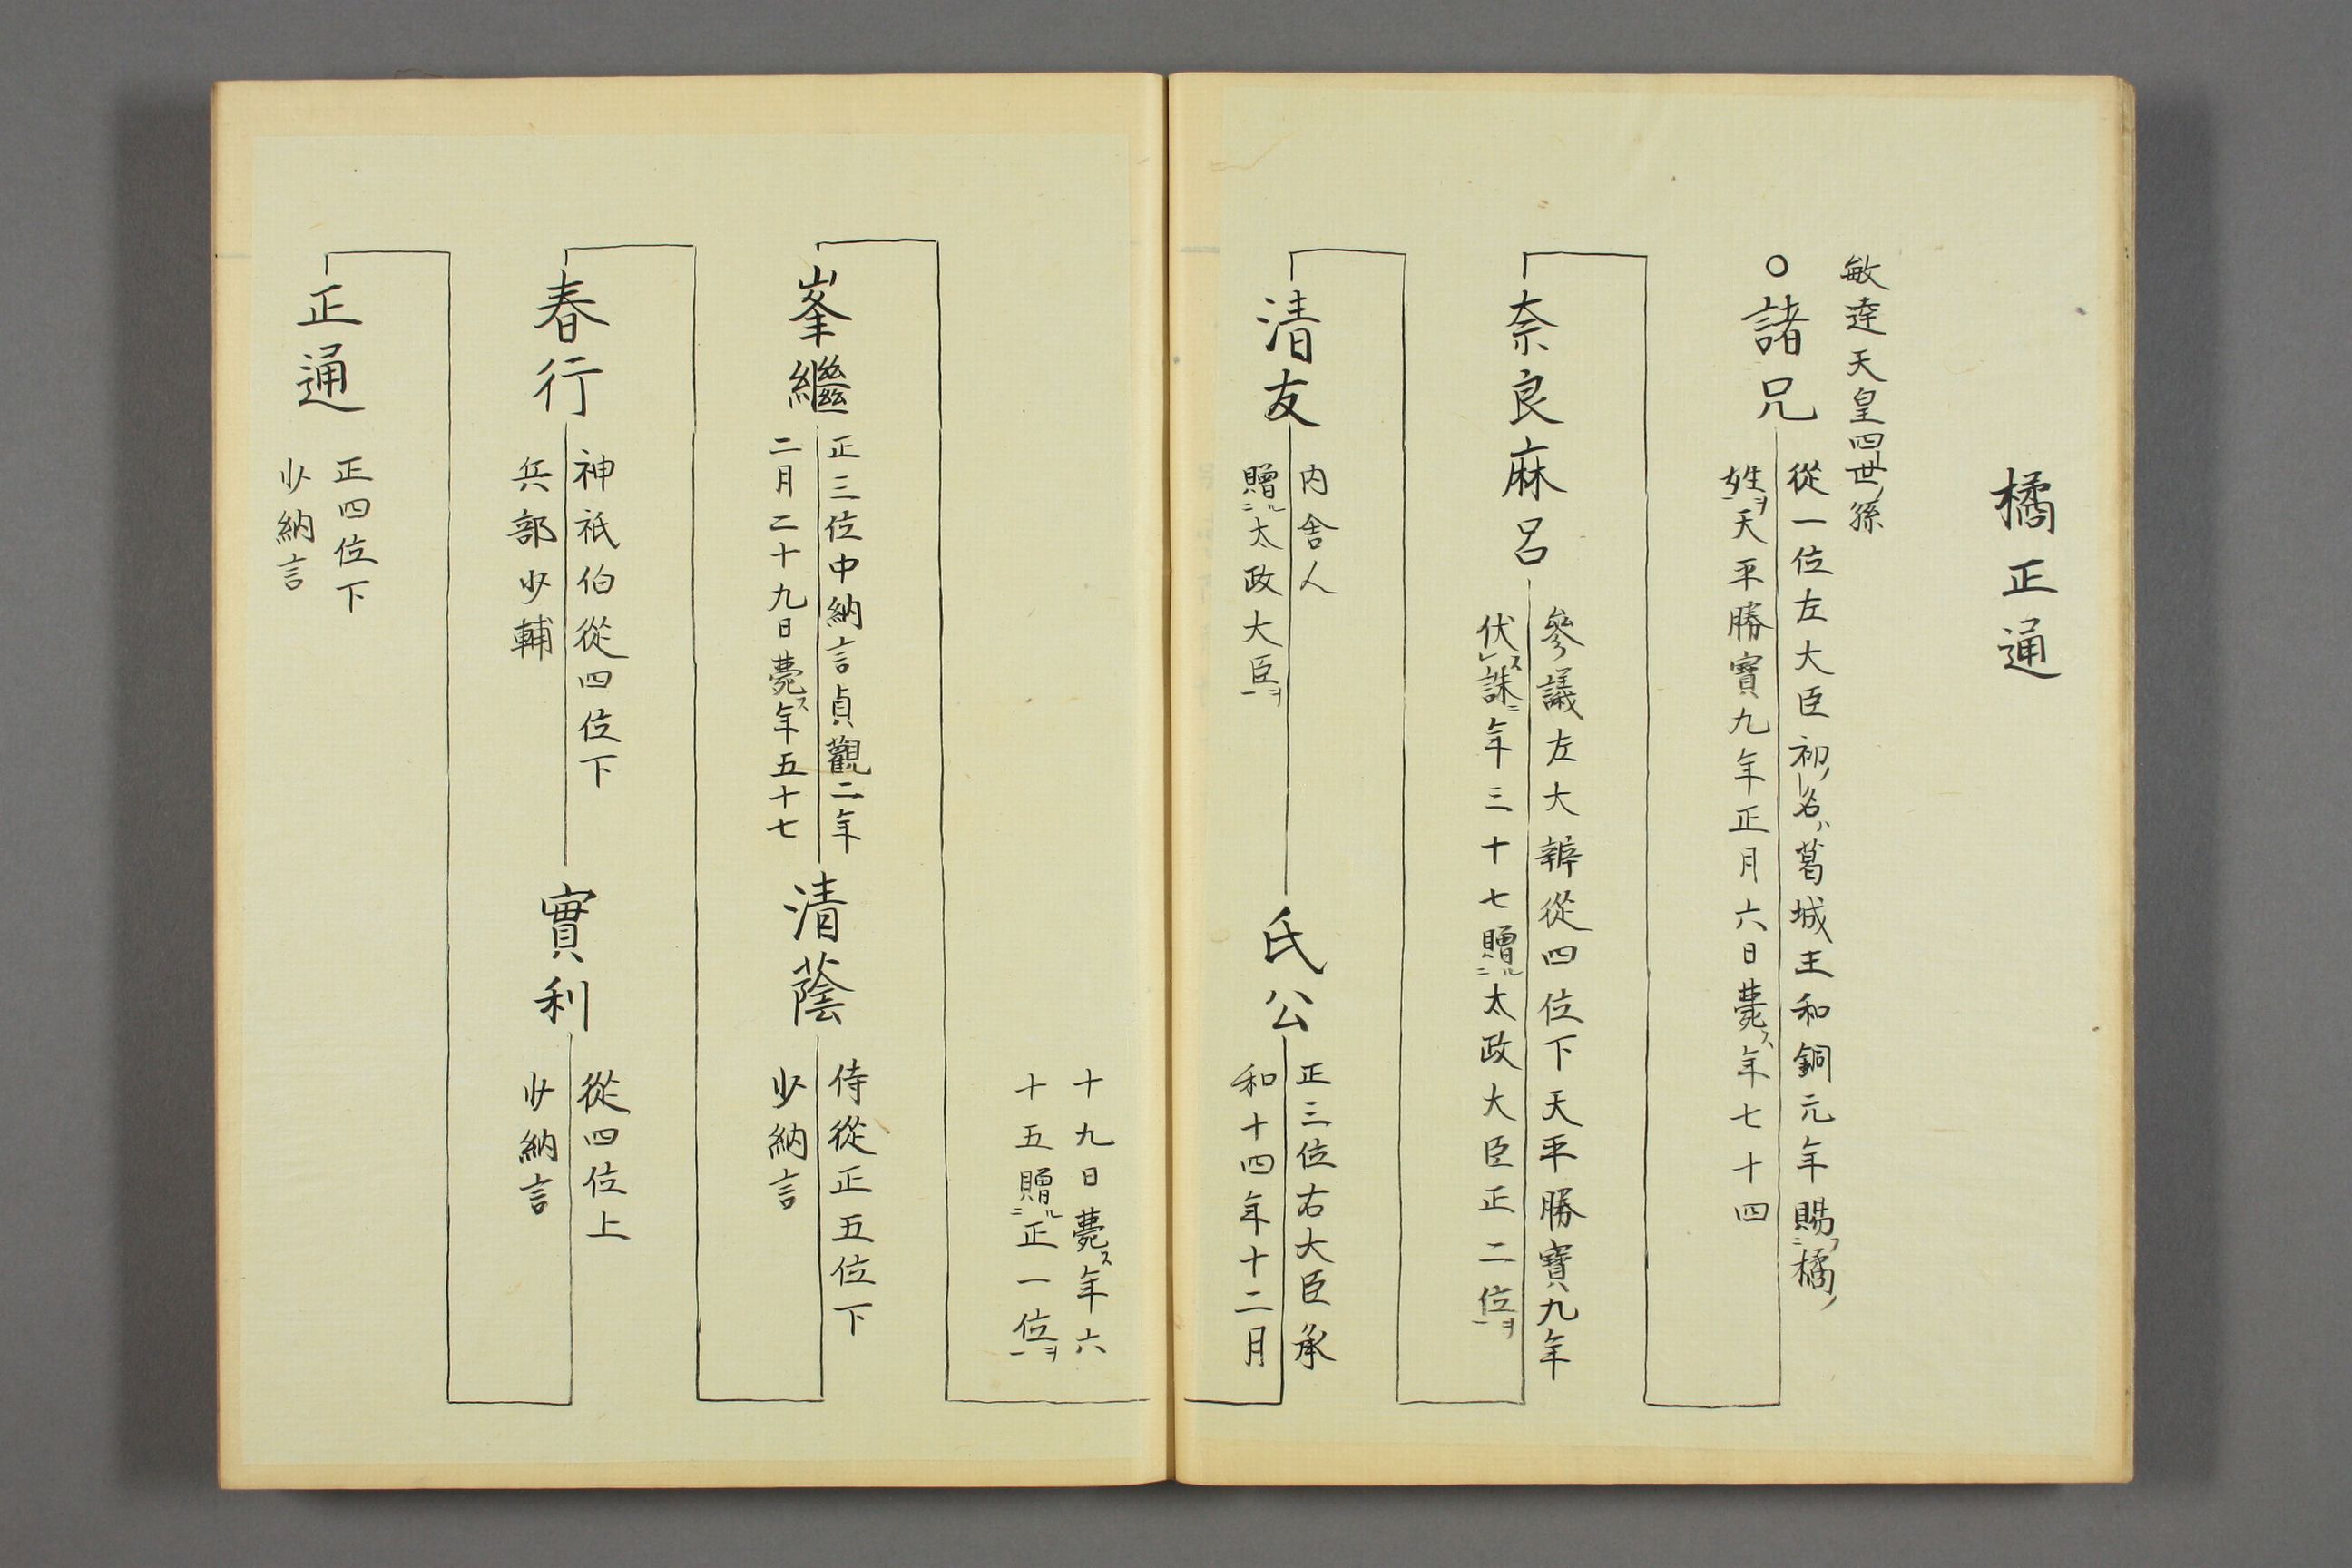 橘正通
敏達天皇四世ノ孫
○諸兄
從一位左大臣初ノ名ハ葛城王和銅元年賜フ二橘ノ
姓ヲ一天平勝寶九年正月六日薨ス年七十四
奈良麻呂
參議左大辨從四位下天平勝寶九年
伏スレ誅ニ年三十七贈ル二太政大臣正二位ヲ一
清友
内舍人
贈ル二太政大臣ヲ一
氏公
正三位右大臣承
和十四年十二月
十九日薨ス年六
十五贈ル二正一位ヲ一
峯繼
正三位中納言貞觀二年
二月二十九日薨ス年五十七
清蔭
侍從正五位下
少納言
春行
神祇伯從四位下
兵部少輔
實利
從四位上
少納言
正通
正四位下
少納言